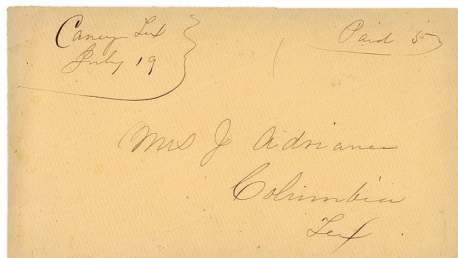 Caney Tex
July 19
Paid 5
Mrs J Adriance
Columbia
Tex